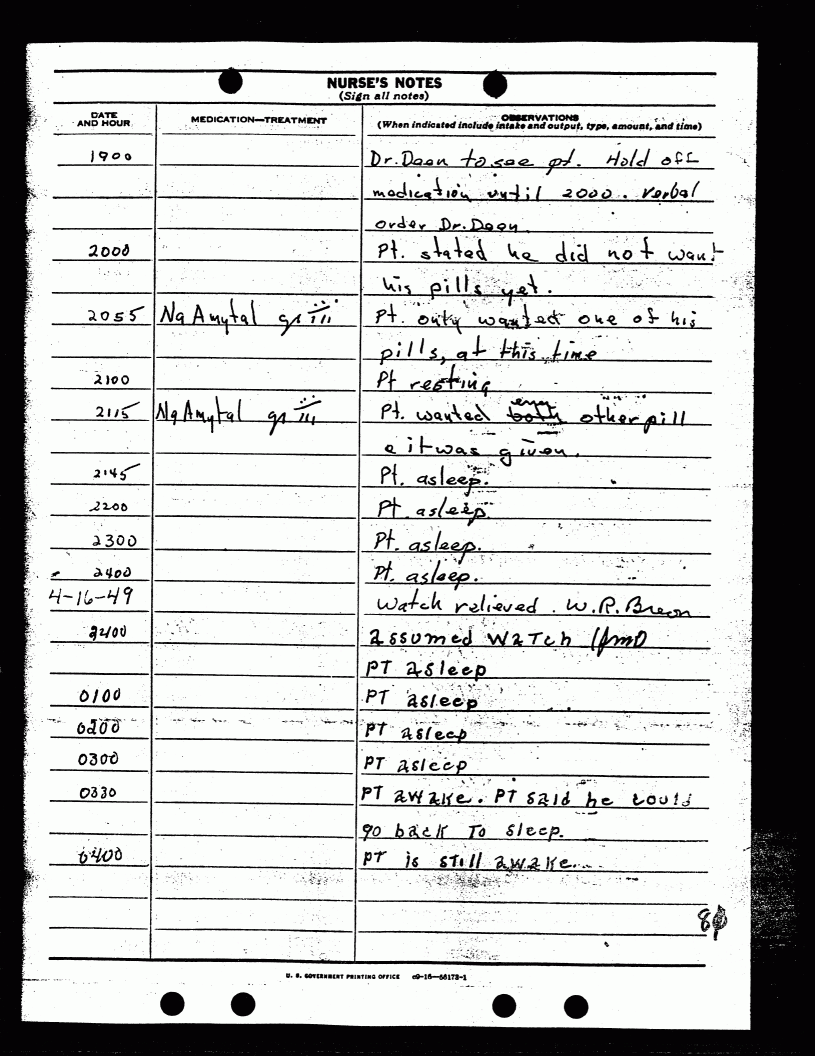 NURSE'S NOTES
(Sign all notes)
DATE AND HOUR MEDICATION—TREATMENT OBSERVATIONS
(When indicated include intake and output, type, amount, and time)
1900 Dr. Deen to see pt. Hold off
medication until 2000. Verbal
order Dr. Deen
2000 Pt. stated he did not want
his pills yet.
2055 Na Amytal gr iii Pt. only wanted one of his
pills, at this time
2100 Pt resting
2115 Na Amytal gr iii Pt. wanted both other pill
e it was given.
2145 Pt. asleep.
2200 Pt asleep.
2300 Pt. asleep.
2400 Pt. asleep.
4-16-49 Watch relieved. W.R. Breon
2400 assumed watch
PT asleep
0100 PT asleep
0200 PT asleep
0300 PT asleep
0330 PT awake. PT said he could
go back to sleep.
0400 PT is still awake.
U. S. GOVERNMENT PRINTING OFFICE c9-16—56173-1